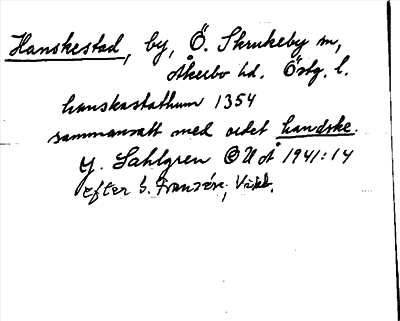 Hanskestad, by, Ö. Skrukeby sn,
Åkerbo hd. Östg. l.
hanskastathum 1354
sammansatt med ordet handske.
J. Sahlgren OUÅ 1941:14
efter S. Fransén,